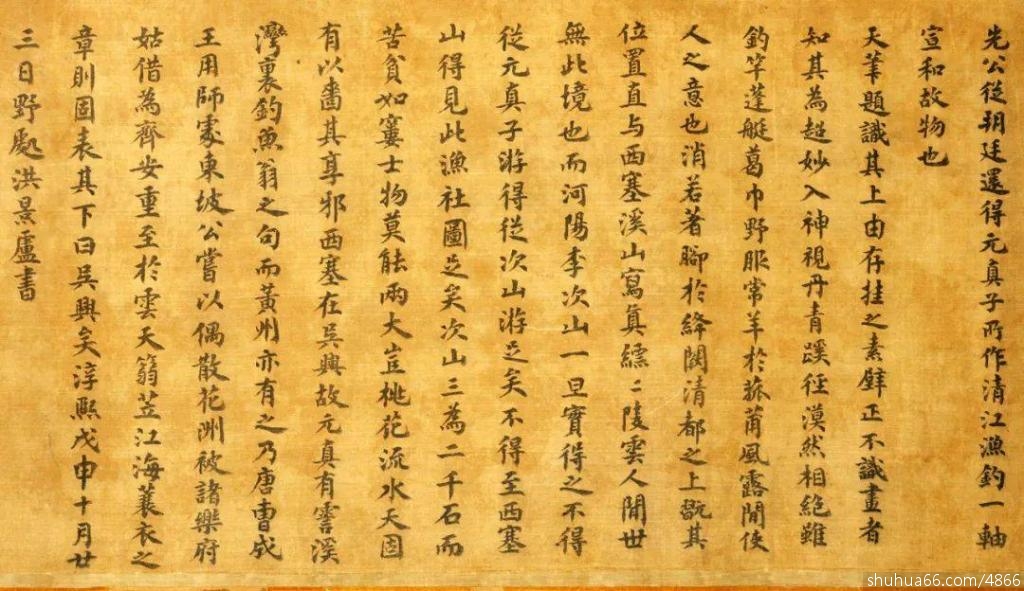 先公從朔廷還得元真子所作清江漁釣一軸
宣和故物也
天華題識其上由存挂之素壁正不識畫者
知其為超妙入神視丹青蹊徑漠然相絕雖
釣竿蓬艇葛巾野服常羊於菰蒲風露閒使
人之意也消若著腳於絳闕清都之上翫其
位置直与西塞溪山寫真繻〻陵雲人閒世
無此境也而河陽李次山一旦實得之不得
從元真子游得從次山游足矣不得至西塞
山得見此漁社圖足矣次山三為二千石而
苦貧如窶士物莫能兩大豈桃花流水天固
有以嗇其享邪西塞在吳興故元真有霅溪
灣裏釣魚翁之句而黃州亦有之乃唐曹成
王用師處東坡公嘗以偶散花洲被諸樂府
姑借為齊安重至於雲天篛笠江海蓑衣之
章則固表其下曰吳興矣淳熙戊申十月廿
三日野處洪景盧書
shuhua66.com/4866